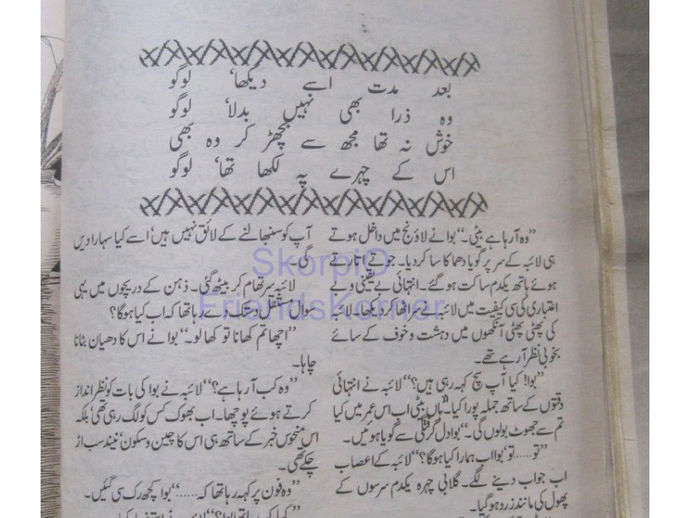 بعد مدت اسے دیکھا، لوگو
وہ ذرا بھی نہیں بدلا، لوگو
خوش نہ تھا مجھ سے بچھڑ کر وہ بھی
اس کے چہرے پہ لکھا تھا، لوگو
"وہ آرہا ہے بیٹی۔" بوا نے لاؤنج میں داخل ہوتے
ہی لائبہ کے سر پر گویا دھماکا سا کردیا۔ جوتے اتارتے
ہوئے ہاتھ یکدم ساکت ہوگئے۔ انتہائی بے یقینی و بے
اعتباری کی سی کیفیت میں لائبہ نے سر اٹھا کر دیکھا۔ لائبہ
کی پھٹی پھٹی آنکھوں میں دہشت و خوف کے سائے
بخوبی نظر آرہے تھے۔
"بوا! کیا آپ سچ کہہ رہی ہیں؟" لائبہ نے انتہائی
دقتوں کے ساتھ جملہ پورا کیا۔ "ہاں بیٹی اب اس عمر میں کیا
تم سے جھوٹ بولوں گی۔" بوا دل گرفتگی سے گویا ہوئیں۔
"تو ..... تو بوا اب ہمارا کیا ہوگا؟" لائبہ کے اعصاب
اب جواب دینے لگے۔ گلابی چہرہ یکدم سرسوں کے
پھول کی مانند زرد ہوگیا۔
آپ کو سنبھالنے کے لائق نہیں ہیں، اسے کیا سہارا دیں
گی۔
لائبہ سر تھام کر بیٹھ گئی۔ ذہن کے دریچوں میں یہی
سوال مستقل دستک دے رہا تھا کہ اب کیا ہوگا؟
"اچھا تم کھانا تو کھا لو۔" بوا نے اس کا دھیان بٹانا
چاہا۔
"وہ کب آرہا ہے؟" لائبہ نے بوا کی بات کو نظر انداز
کرتے ہوئے پوچھا۔ اب بھوک کس کو لگ رہی تھی، بلکہ
اس منحوس خبر کے ساتھ ہی اس کا چین و سکون، نیند سب اڑ
چکے تھی۔
"وہ فون پر کہہ رہا تھا کہ ......" بوا کچھ رک سی گئیں۔
SkorpiO
FriendsKorner